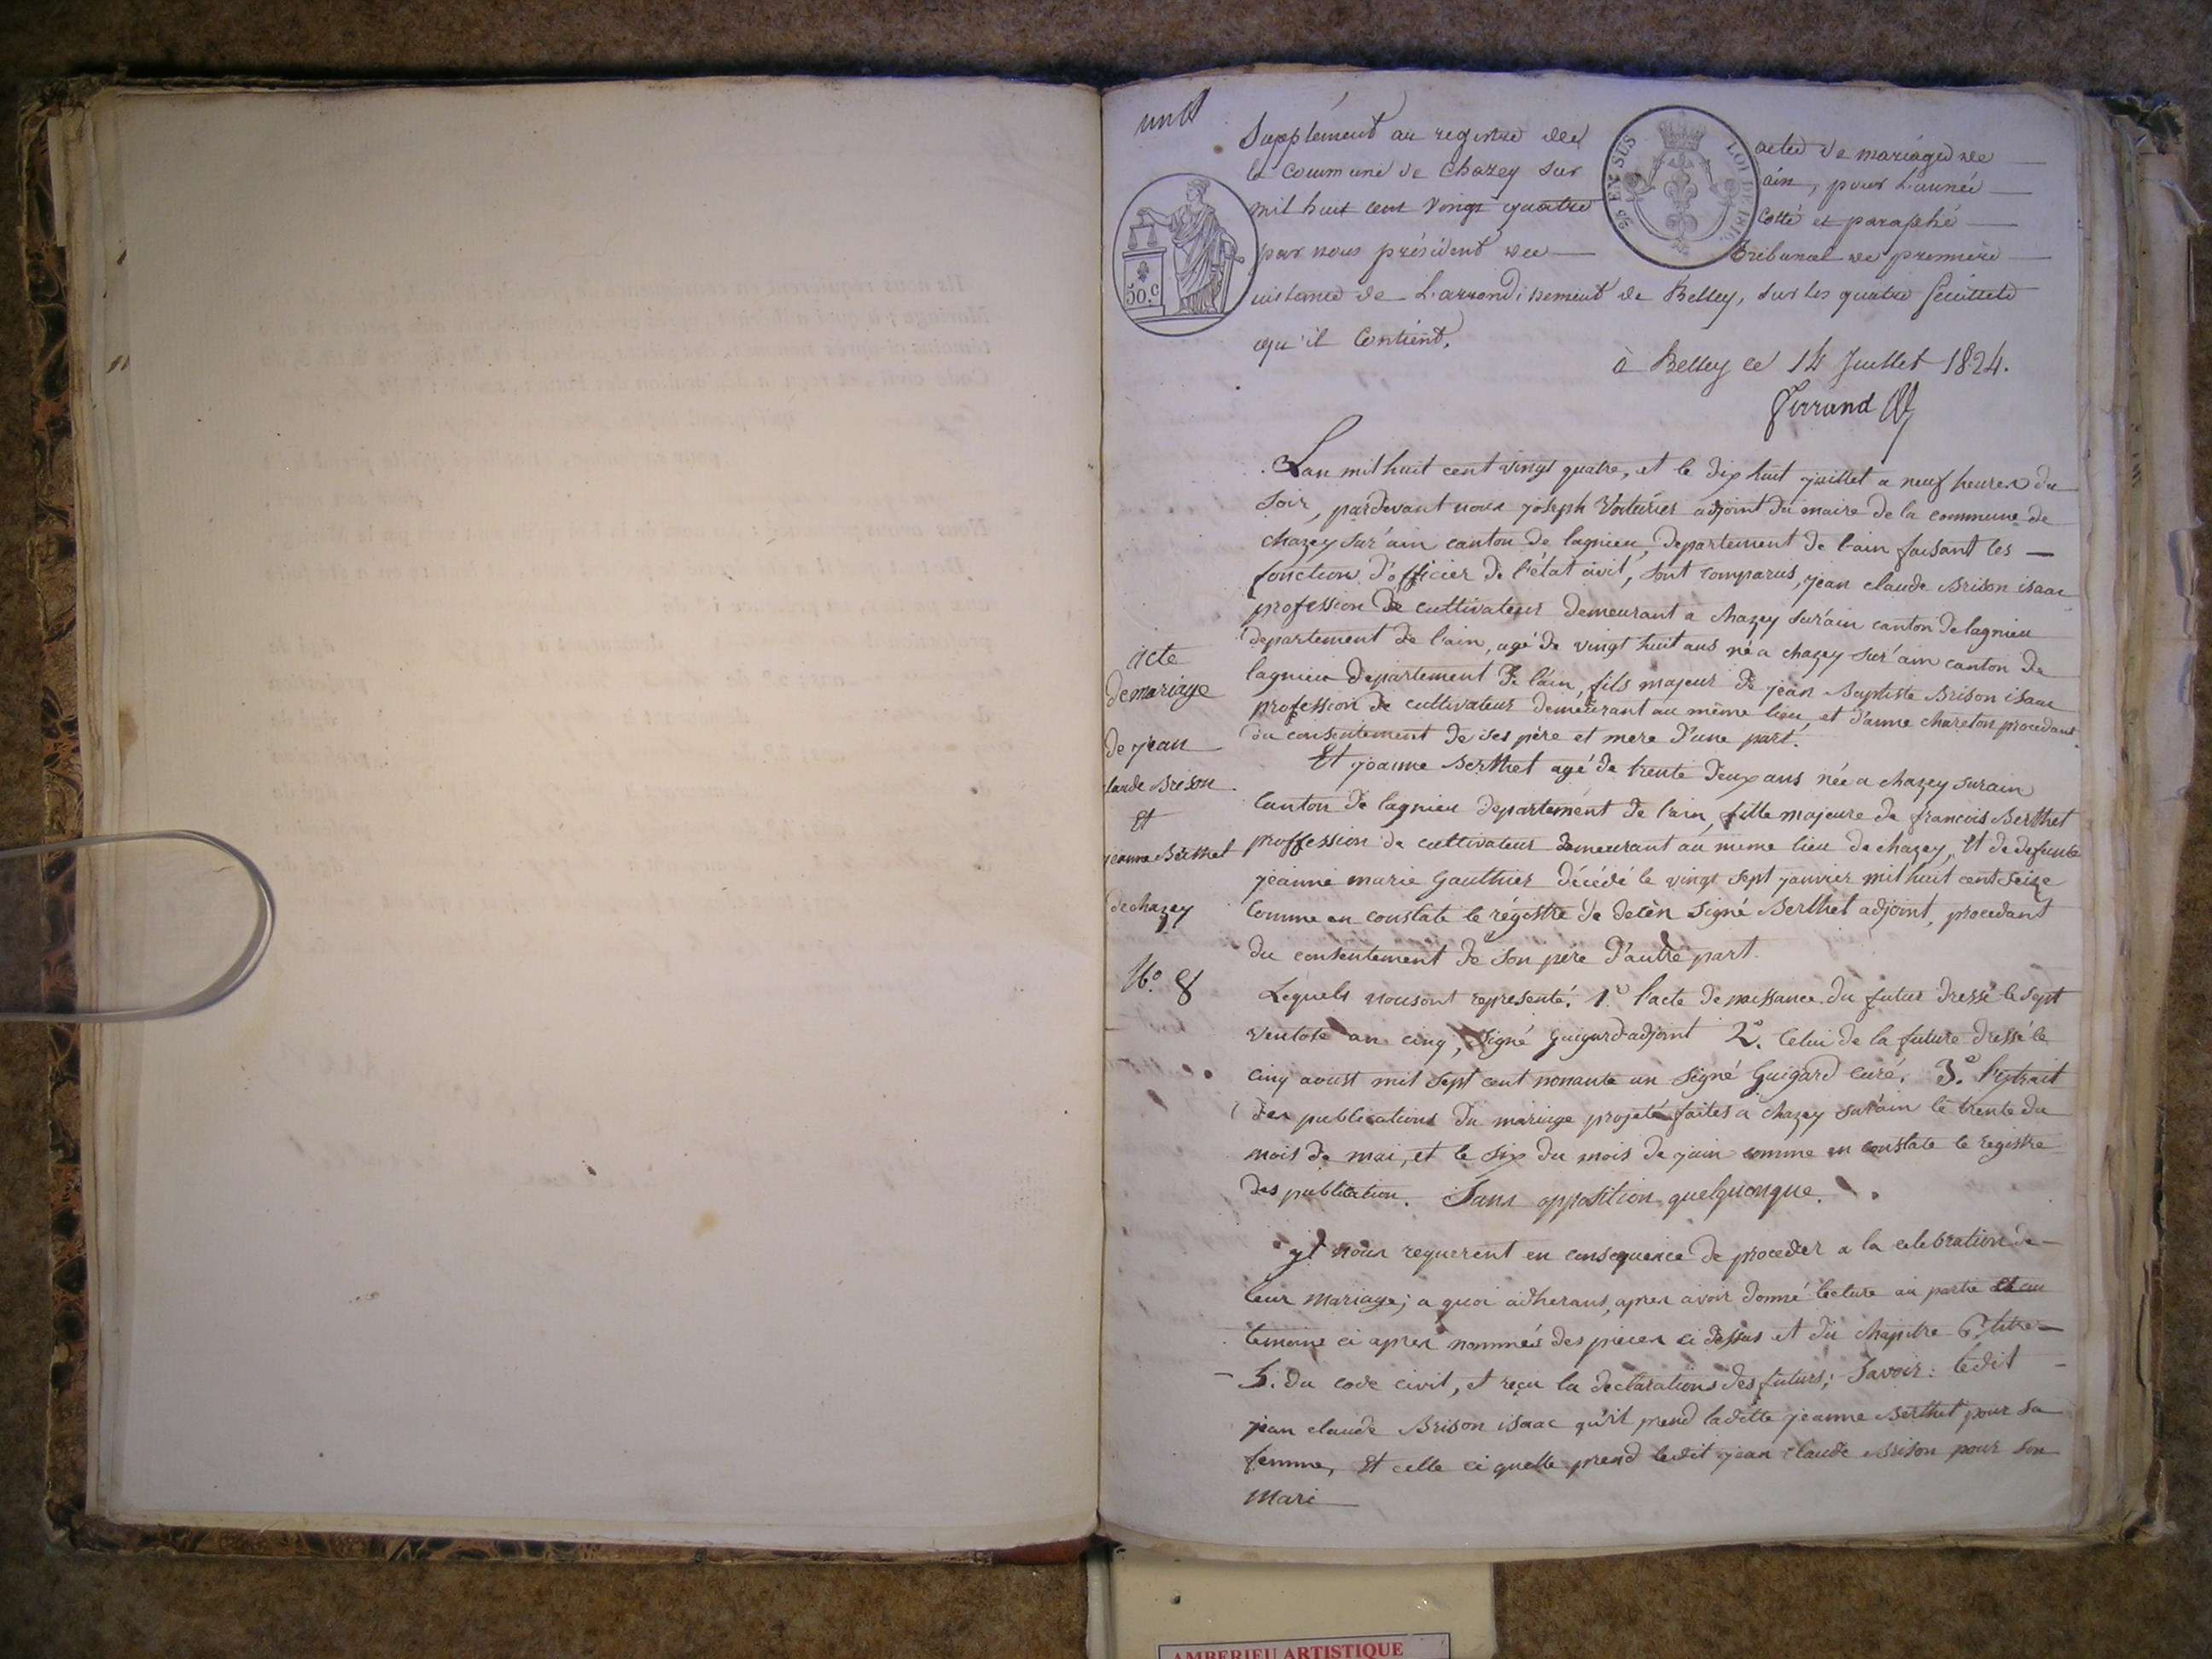 Supplément au registre des actes de mariages de
la Commune de Chazey sur ain, pour L'année
mil huit cent vingt quatre Cotté et paraphé
par nous président du Tribunal de première
instance de L'arrondissement de Belley, sur les quatre feuillets
qu'il Contient.
à Belley ce 14 Juillet 1824.
Ferrand
50.c
EN SUS
LOI DE 1816.
L'an mil huit cent vingt quatre, et le dix huit juillet a neuf heures du
soir, pardevant nous joseph Voiturier adjoint du maire de la commune de
chazey sur ain canton de lagnieu, departement de l'ain faisant les
fonction d'officier de l'état civil, sont comparus, jean claude Brison isaac
profession de cultivateur demeurant a chazey sur ain canton de lagnieu
departement de l'ain, agé de vingt huit ans né a chazey sur ain canton de
lagnieu departement de l'ain, fils majeur de jean Baptiste Brison isaac
profession de cultivateur demeurant au même lieu, et d'anne chareton procedant
du consentement de ses père et mere d'une part.
Et joanne Berthet agé de trente deux ans née a chazey sur ain
Canton de lagnieu departement de l'ain, fille majeure de francois Berthet
proffession de cultivateur demeurant au même lieu de chazey, Et de defunte
jeanne marie Gauthier décédé le vingt sept janvier mil huit cent seize
Comme en constate le régistre de décès signé Berthet adjoint, procedant
du consentement de son père d'autre part.
Lequels nous ont representé. 1.° l'acte de naissance du futur dressé le sept
ventose an cinq, signé Guigard adjoint 2.° Celui de la future dressé le
cinq aoust mil sept cent nonante un signé Guigard curé. 3.° l'extrait
des publications du mariage projeté faites a chazey sur ain le trente du
mois de mai, et le six du mois de juin comme en constate le registre
des publication. Sans opposition quelquonque.
yl nous requerent en consequence de proceder a la celebration de
leur mariage; a quoi adherant, apres avoir donné lecture au partie et au
temoins ci apres nommés des pieces ci dessus et du chapitre 6. titre
5. du code civil, et reçu la declarations des futurs; Savoir: ledit
jean claude Brison isaac qu'il prend ladite jeanne Berthet pour sa
femme, Et celle ci quelle prend ledit jean claude Brison pour son
mari
acte
de mariage
de jean
laude Brison
Et
jeanne Berthet
de chazey
N.° 8
AMBERIEU ARTISTIQUE